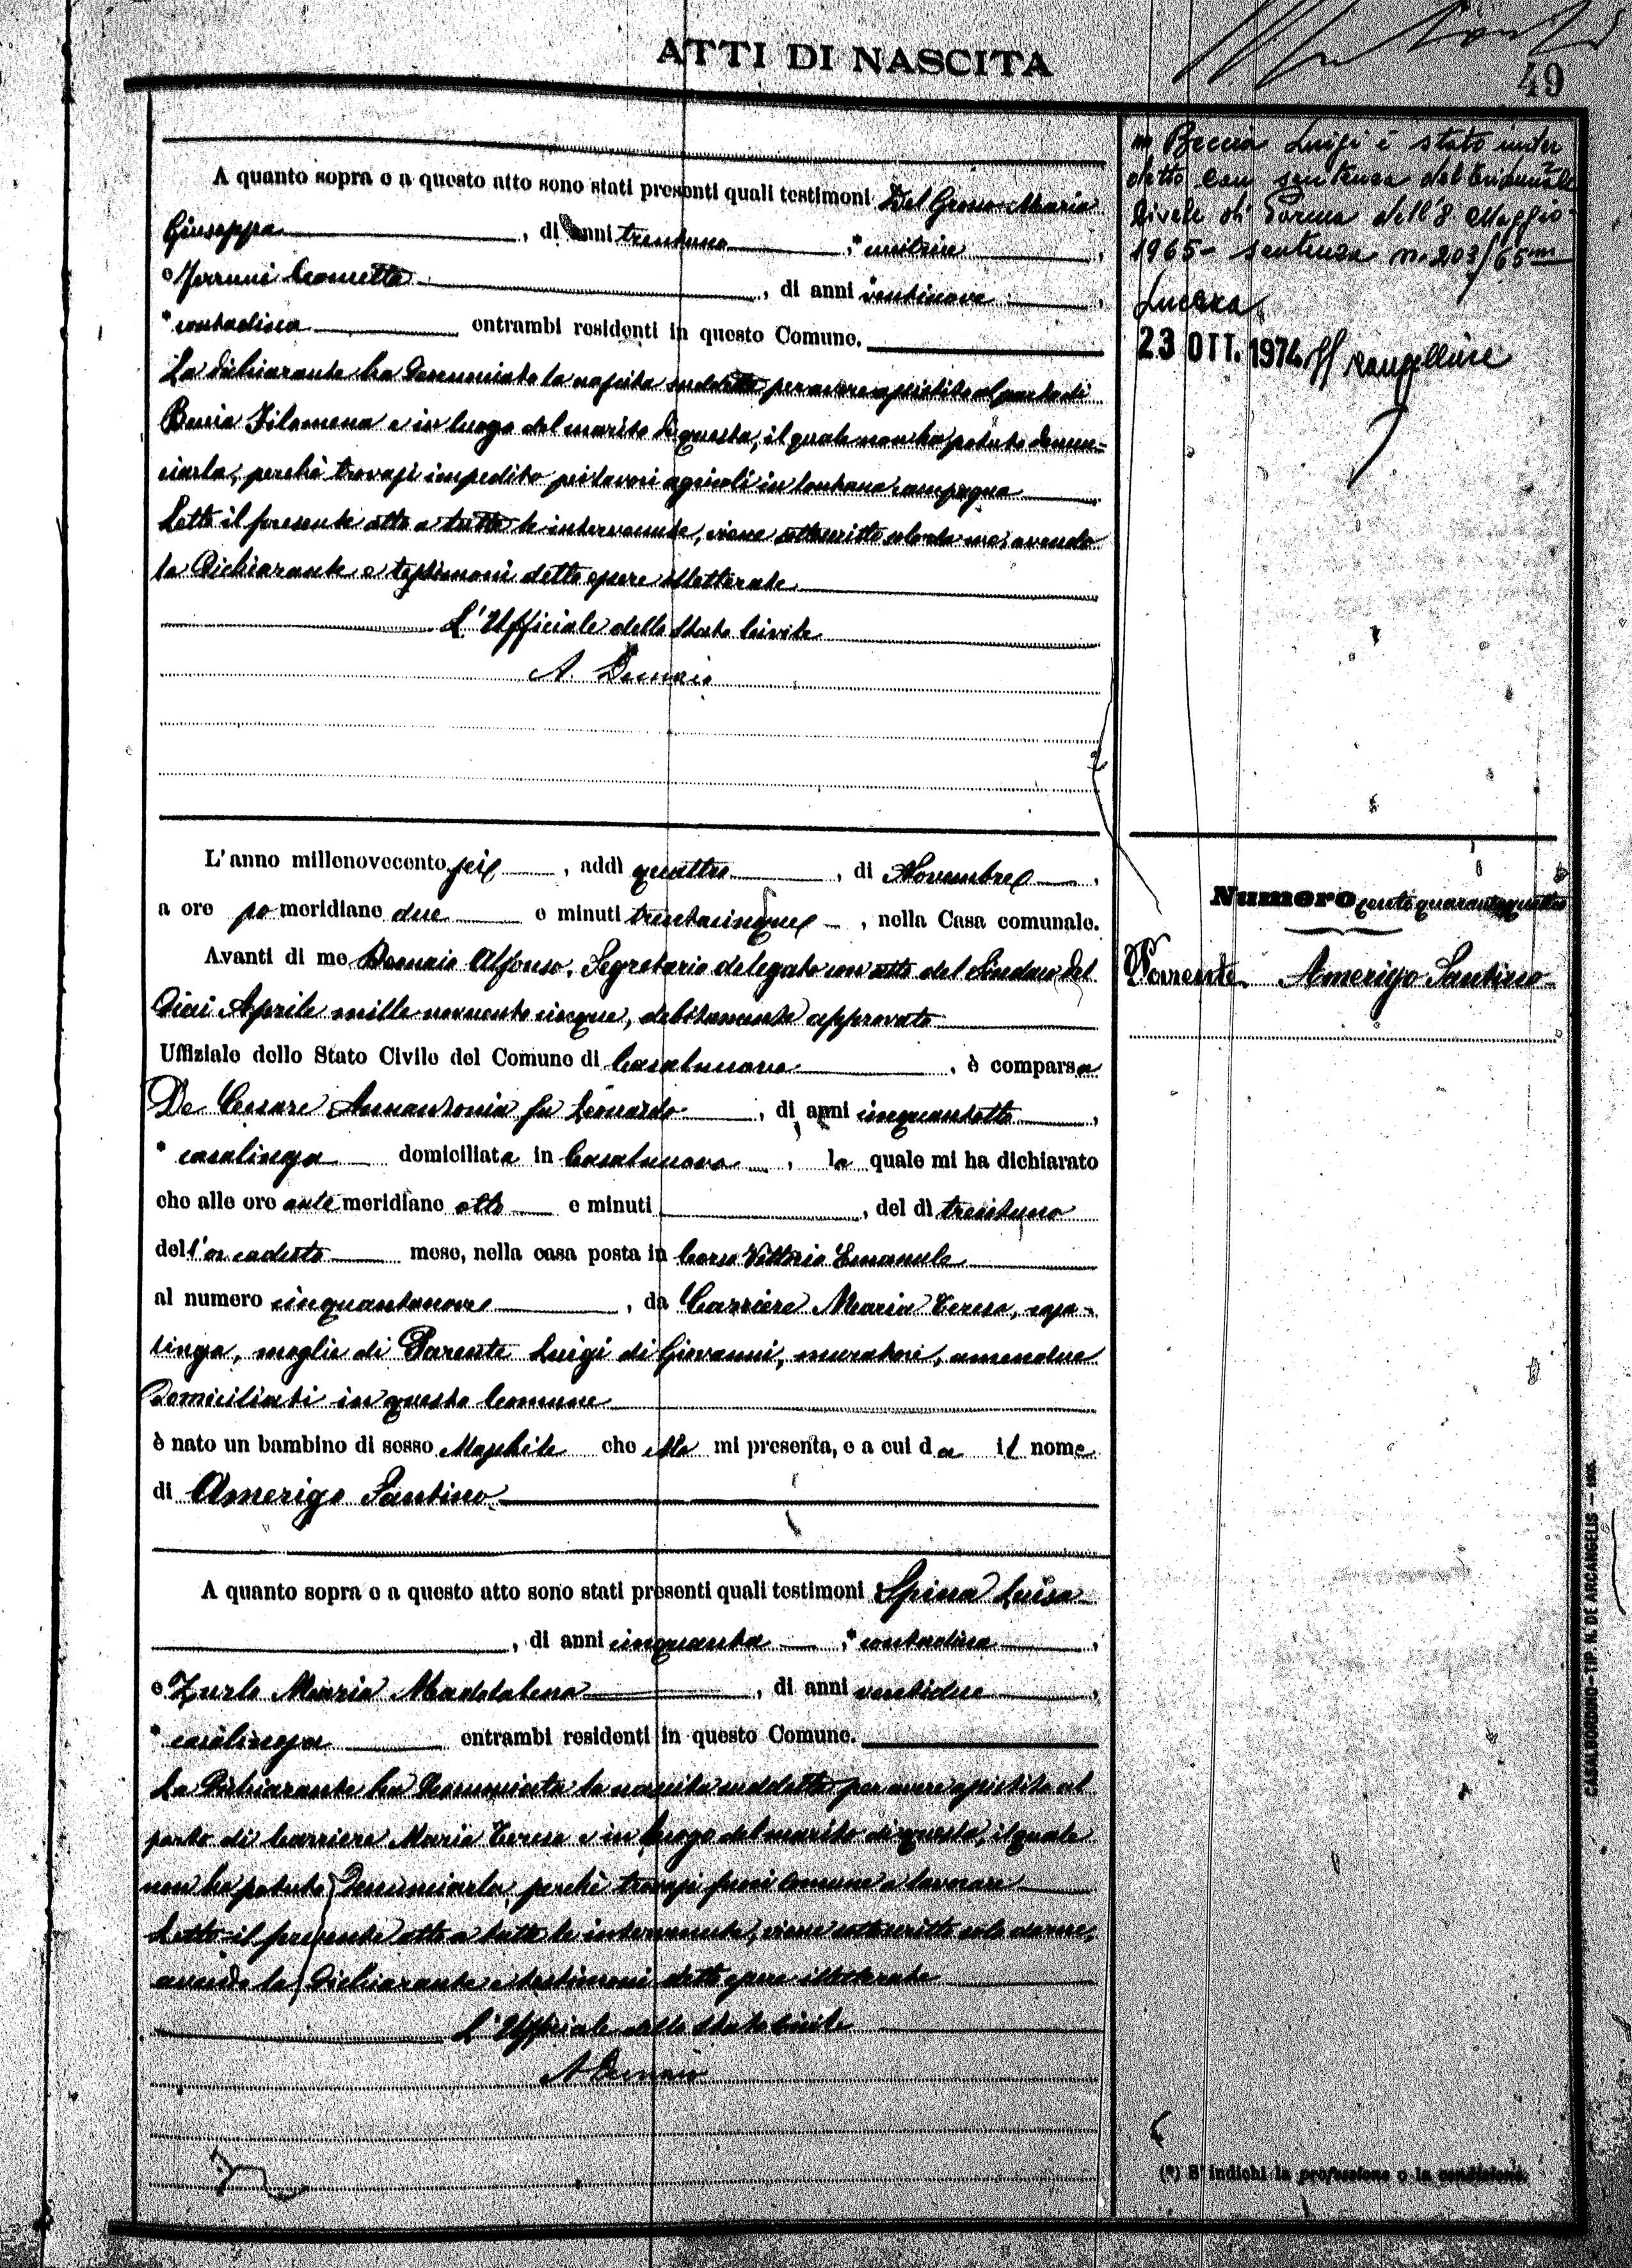 ATTI DI NASCITA
49
A quanto sopra e a questo atto sono stati presenti quali testimoni Del Grosso Maria
Giuseppa, di anni trentuno, * cucitrice,
e Ferruni Leonetta, di anni ventinove,
* contadina entrambi residenti in questo Comune.
La dichiarante ha denunciato la nascita suddetta per avere assistito al parto di
Beccia Filomena e in luogo del marito di questa, il quale non ha potuto denun-
ciarla, perchè trovasi impedito pei lavori agricoli in lontana campagna
Letto il presente atto a tutte le intervenute, viene sottoscritto solo da me, avendo
la dichiarante e testimoni detto essere illetterate
L'Ufficiale dello Stato Civile
A. Demaio
m Beccia Luigi è stato inter
detto con sentenza del Tribunale
Civile di Parma dell'8 Maggio
1965 - sentenza n. 203/65
Lucera
23 OTT. 1974
L'anno millenovecento sei, addì quattro, di Novembre,
a ore po meridiane due e minuti trentacinque, nella Casa comunale.
Avanti di me Demaio Alfonso, Segretario delegato con atto del Sindaco del
dieci Aprile mille novecento cinque, debitamente approvato
Uffiziale dello Stato Civile del Comune di Casalnuovo, è comparsa
De Cesare Annantonia fu Leonardo, di anni cinquantotto,
* casalinga domiciliata in Casalnuovo, la quale mi ha dichiarato
che alle ore ante meridiane otto e minuti, del dì trentuno
dell'or caduto mese, nella casa posta in Corso Vittorio Emanuele
al numero cinquantanove, da Carriere Maria Teresa, casa-
linga, moglie di Parente Luigi di Giovanni, muratore, amendue
domiciliati in questo Comune
è nato un bambino di sesso Maschile che ella mi presenta, e a cui da il nome
di Amerigo Santino
Numero cento quarantaquattro
Parente Amerigo Santino
A quanto sopra e a questo atto sono stati presenti quali testimoni Spina Luisa
, di anni cinquanta, * contadina,
e Zurlo Maria Maddalena, di anni ventidue,
* casalinga entrambi residenti in questo Comune.
La dichiarante ha denunciata la nascita suddetta per avere assistito al
parto di Carriere Maria Teresa e in luogo del marito di questa, il quale
non ha potuto denunciarla perchè trovasi fuori Comune a lavorare
Letto il presente atto a tutte le intervenute, viene sottoscritto solo da me,
avendo la dichiarante e testimoni detto essere illetterate
L'Ufficiale dello Stato Civile
A Demaio
(*) S'indichi la professione o la condizione.
CASALBORDINO—TIP. N. DE ARCANGELIS — 1905.